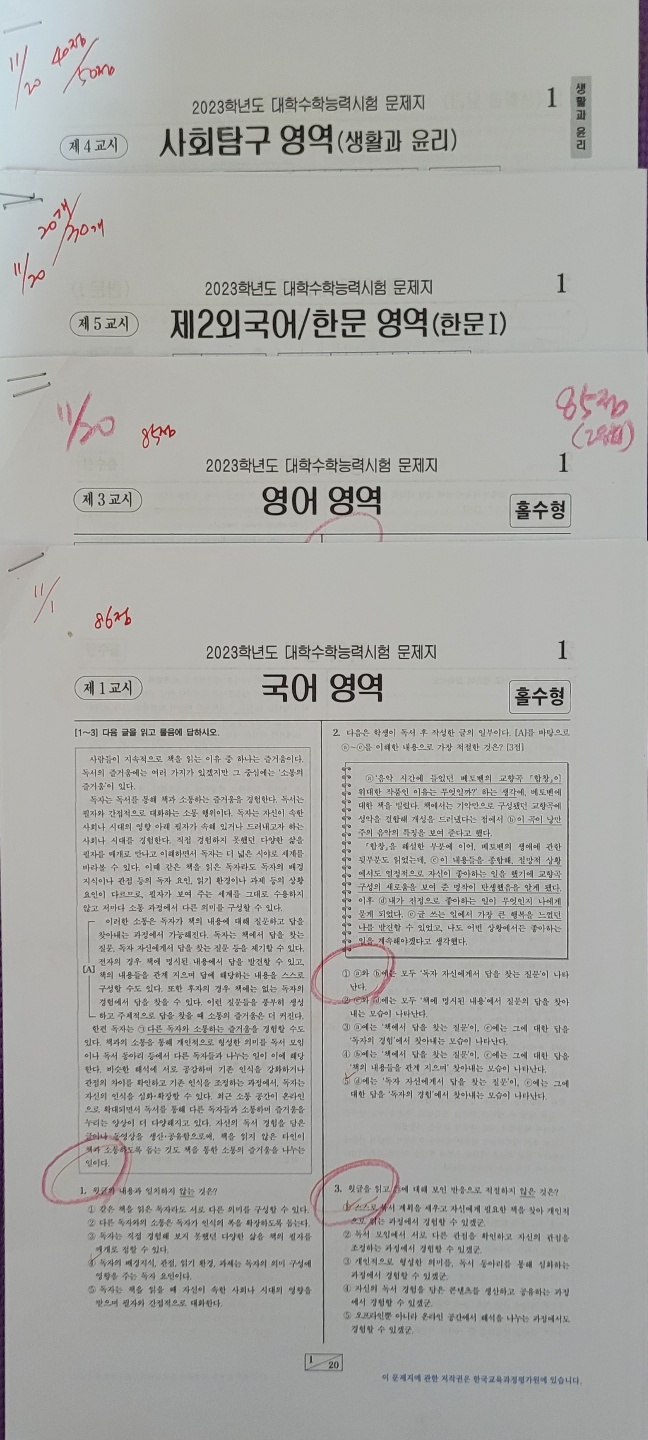 11/20 40점/50점
2023학년도 대학수학능력시험 문제지
1
생활과 윤리
제 4 교시
사회탐구 영역(생활과 윤리)
20개/30개
11/20
2023학년도 대학수학능력시험 문제지
1
제 5 교시
제2외국어/한문 영역(한문 I)
11/20
85점
85점
2023학년도 대학수학능력시험 문제지
1
제 3 교시
영어 영역
홀수형
11/1
86점
2023학년도 대학수학능력시험 문제지
1
제 1 교시
국어 영역
홀수형
[1~3] 다음 글을 읽고 물음에 답하시오.
사람들이 지속적으로 책을 읽는 이유 중 하나는 즐거움이다.
독서의 즐거움에는 여러 가지가 있겠지만 그 중심에는 '소통의
즐거움'이 있다.
독자는 독서를 통해 책과 소통하는 즐거움을 경험한다. 독서는
필자와 간접적으로 대화하는 소통 행위이다. 독자는 자신이 속한
사회나 시대의 영향 아래 필자가 속해 있거나 드러내고자 하는
사회나 시대를 경험한다. 직접 경험하지 못했던 다양한 삶을
필자를 매개로 만나고 이해하면서 독자는 더 넓은 시야로 세계를
바라볼 수 있다. 이때 같은 책을 읽은 독자라도 독자의 배경
지식이나 관점 등의 독자 요인, 읽기 환경이나 과제 등의 상황
요인이 다르므로, 필자가 보여 주는 세계를 그대로 수용하지
않고 저마다 소통 과정에서 다른 의미를 구성할 수 있다.
이러한 소통은 독자가 책의 내용에 대해 질문하고 답을
찾아내는 과정에서 가능해진다. 독자는 책에서 답을 찾는
질문, 독자 자신에게서 답을 찾는 질문 등을 제기할 수 있다.
전자의 경우 책에 명시된 내용에서 답을 발견할 수 있고,
책의 내용들을 관계 지으며 답에 해당하는 내용을 스스로
[A]
구성할 수도 있다. 또한 후자의 경우 책에는 없는 독자의
경험에서 답을 찾을 수 있다. 이런 질문들을 풍부히 생성
하고 주체적으로 답을 찾을 때 소통의 즐거움은 더 커진다.
한편 독자는 ㉠다른 독자와 소통하는 즐거움을 경험할 수도
있다. 책과의 소통을 통해 개인적으로 형성한 의미를 독서 모임
이나 독서 동아리 등에서 다른 독자들과 나누는 일이 이에 해당
한다. 비슷한 해석에 서로 공감하며 기존 인식을 강화하거나
관점의 차이를 확인하고 기존 인식을 조정하는 과정에서, 독자는
자신의 인식을 심화·확장할 수 있다. 최근 소통 공간이 온라인
으로 확대되면서 독서를 통해 다른 독자들과 소통하며 즐거움을
누리는 양상이 더 다양해지고 있다. 자신의 독서 경험을 담은
글이나 동영상을 생산·공유함으로써, 책을 읽지 않은 타인이
책과 소통하도록 돕는 것도 책을 통한 소통의 즐거움을 나누는
일이다.
1. 윗글의 내용과 일치하지 않는 것은?
① 같은 책을 읽은 독자라도 서로 다른 의미를 구성할 수 있다.
② 다른 독자와의 소통은 독자가 인식의 폭을 확장하도록 돕는다.
③ 독자는 직접 경험해 보지 못했던 다양한 삶을 책의 필자를
매개로 접할 수 있다.
④ 독자의 배경지식, 관점, 읽기 환경, 과제는 독자의 의미 구성에
영향을 주는 독자 요인이다.
⑤ 독자는 책을 읽을 때 자신이 속한 사회나 시대의 영향을
받으며 필자와 간접적으로 대화한다.
2. 다음은 학생이 독서 후 작성한 글의 일부이다. [A]를 바탕으로
ⓐ~ⓔ를 이해한 내용으로 가장 적절한 것은? [3점]
ⓐ'음악 시간에 들었던 베토벤의 교향곡 「합창」이
위대한 작품인 이유는 무엇일까?' 하는 생각에, 베토벤에
대한 책을 빌렸다. 책에서는 기악만으로 구성됐던 교향곡에
성악을 결합해 개성을 드러냈다는 점에서 ⓑ이 곡이 낭만
주의 음악의 특징을 보여 준다고 했다.
「합창」을 해설한 부분에 이어, 베토벤의 생애에 관한
뒷부분도 읽었는데, ⓒ이 내용들을 종합해, 절망적 상황
에서도 열정적으로 자신이 좋아하는 일을 했기에 교향곡
구성의 새로움을 보여 준 명작이 탄생했음을 알게 됐다.
이후 ⓓ내가 진정으로 좋아하는 일이 무엇인지 나에게
묻게 되었다. ⓔ글 쓰는 일에서 가장 큰 행복을 느꼈던
나를 발견할 수 있었고, 나도 어떤 상황에서든 좋아하는
일을 계속해야겠다고 생각했다.
① ⓐ와 ⓑ에는 모두 '독자 자신에게서 답을 찾는 질문'이 나타
난다.
② ⓒ와 ⓓ에는 모두 '책에 명시된 내용'에서 질문의 답을 찾아
내는 모습이 나타난다.
③ ⓐ에는 '책에서 답을 찾는 질문'이, ⓔ에는 그에 대한 답을
'독자의 경험'에서 찾아내는 모습이 나타난다.
④ ⓑ에는 '책에서 답을 찾는 질문'이, ⓒ에는 그에 대한 답을
'책의 내용들을 관계 지으며' 찾아내는 모습이 나타난다.
⑤ ⓓ에는 '독자 자신에게서 답을 찾는 질문'이, ⓔ에는 그에
대한 답을 '독자의 경험'에서 찾아내는 모습이 나타난다.
3. 윗글을 읽고 ㉠에 대해 보인 반응으로 적절하지 않은 것은?
① 스스로 독서 계획을 세우고 자신에게 필요한 책을 찾아 개인적
으로 읽는 과정에서 경험할 수 있겠군.
② 독서 모임에서 서로 다른 관점을 확인하고 자신의 관점을
조정하는 과정에서 경험할 수 있겠군.
③ 개인적으로 형성한 의미를, 독서 동아리를 통해 심화하는
과정에서 경험할 수 있겠군.
④ 자신의 독서 경험을 담은 콘텐츠를 생산하고 공유하는 과정
에서 경험할 수 있겠군.
⑤ 오프라인뿐 아니라 온라인 공간에서 해석을 나누는 과정에서도
경험할 수 있겠군.
1
20
이 문제지에 관한 저작권은 한국교육과정평가원에 있습니다.